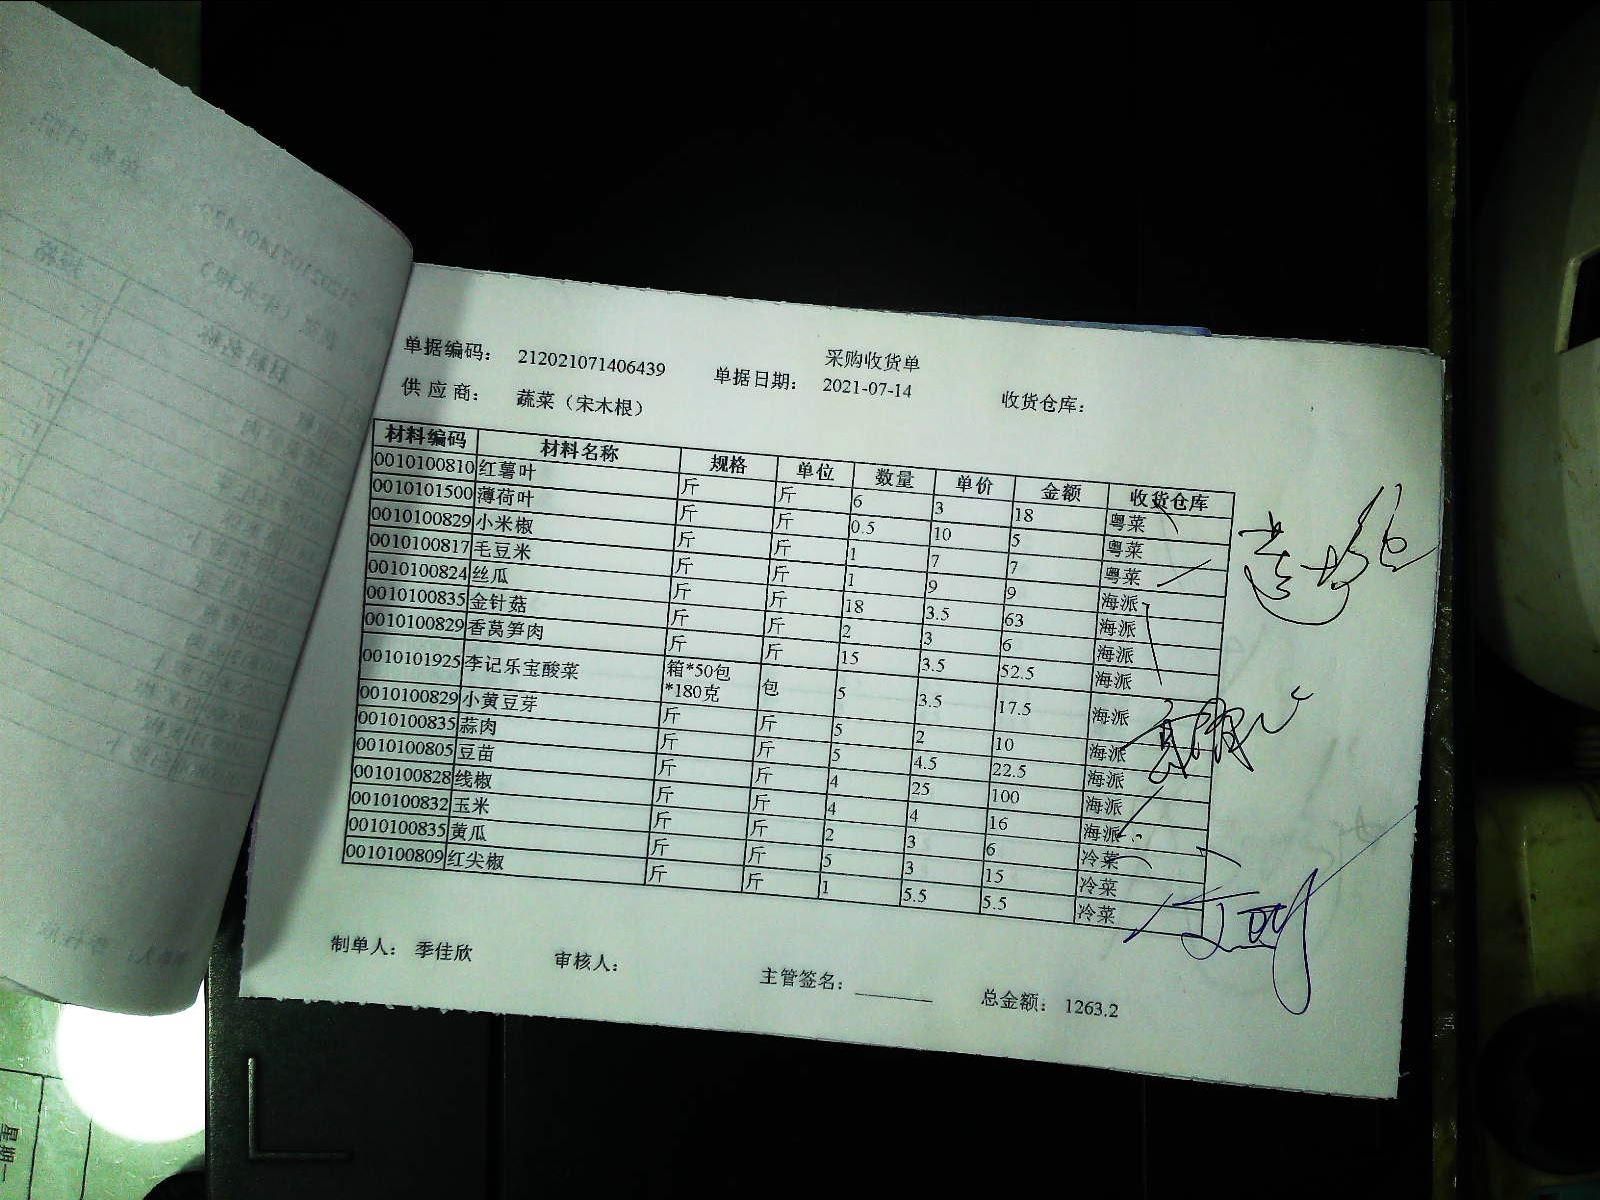 采购收货单
单据编码： 212021071406439 单据日期： 2021-07-14 收货仓库：
供 应 商： 蔬菜（宋木根）
材料编码 材料名称 规格 单位 数量 单价 金额 收货仓库
0010100810 红薯叶 斤 斤 6 3 18 粤菜
0010101500 薄荷叶 斤 斤 0.5 10 5 粤菜
0010100829 小米椒 斤 斤 1 7 7 粤菜
0010100817 毛豆米 斤 斤 1 9 9 海派
0010100824 丝瓜 斤 斤 18 3.5 63 海派
0010100835 金针菇 斤 斤 2 3 6 海派
0010100829 香莴笋肉 斤 斤 15 3.5 52.5 海派
0010101925 李记乐宝酸菜 箱*50包*180克 包 5 3.5 17.5 海派
0010100829 小黄豆芽 斤 斤 5 2 10 海派
0010100835 蒜肉 斤 斤 5 4.5 22.5 海派
0010100805 豆苗 斤 斤 4 25 100 海派
0010100828 线椒 斤 斤 4 4 16 海派
0010100832 玉米 斤 斤 2 3 6 冷菜
0010100835 黄瓜 斤 斤 5 3 15 冷菜
0010100809 红尖椒 斤 斤 1 5.5 5.5 冷菜
制单人： 季佳欣 审核人： 主管签名： 总金额： 1263.2